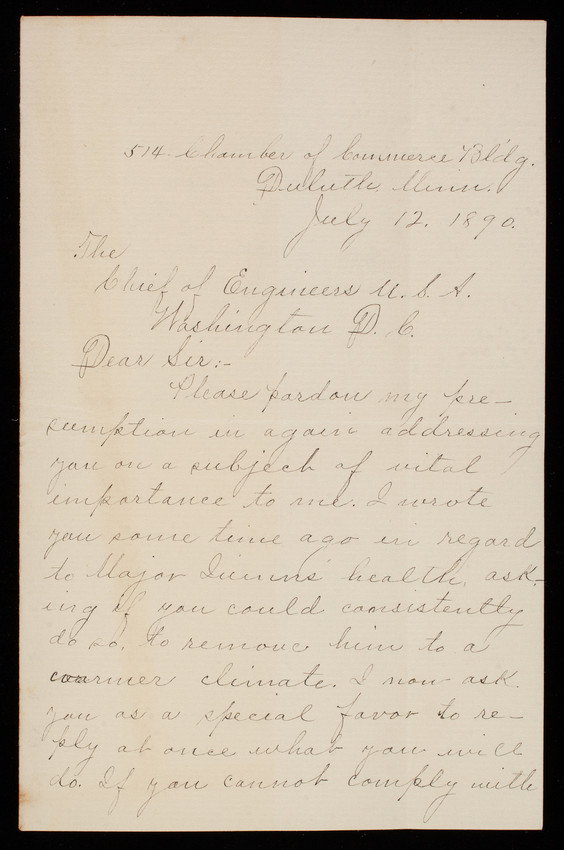 514 Chamber of Commerce Bldg.
Duluth, Minn.
July 12, 1890.
The
Chief of Engineers U. S. A.
Washington D. C.
Dear Sir:-
Please pardon my pre-
sumption in again addressing
you on a subject of vital
importance to me. I wrote
you some time ago in regard
to Major Quinn's health, ask-
ing if you could consistently
do so, to remove him to a
warmer climate. I now ask
you as a special favor to re-
ply at once what you will
do. If you cannot comply with